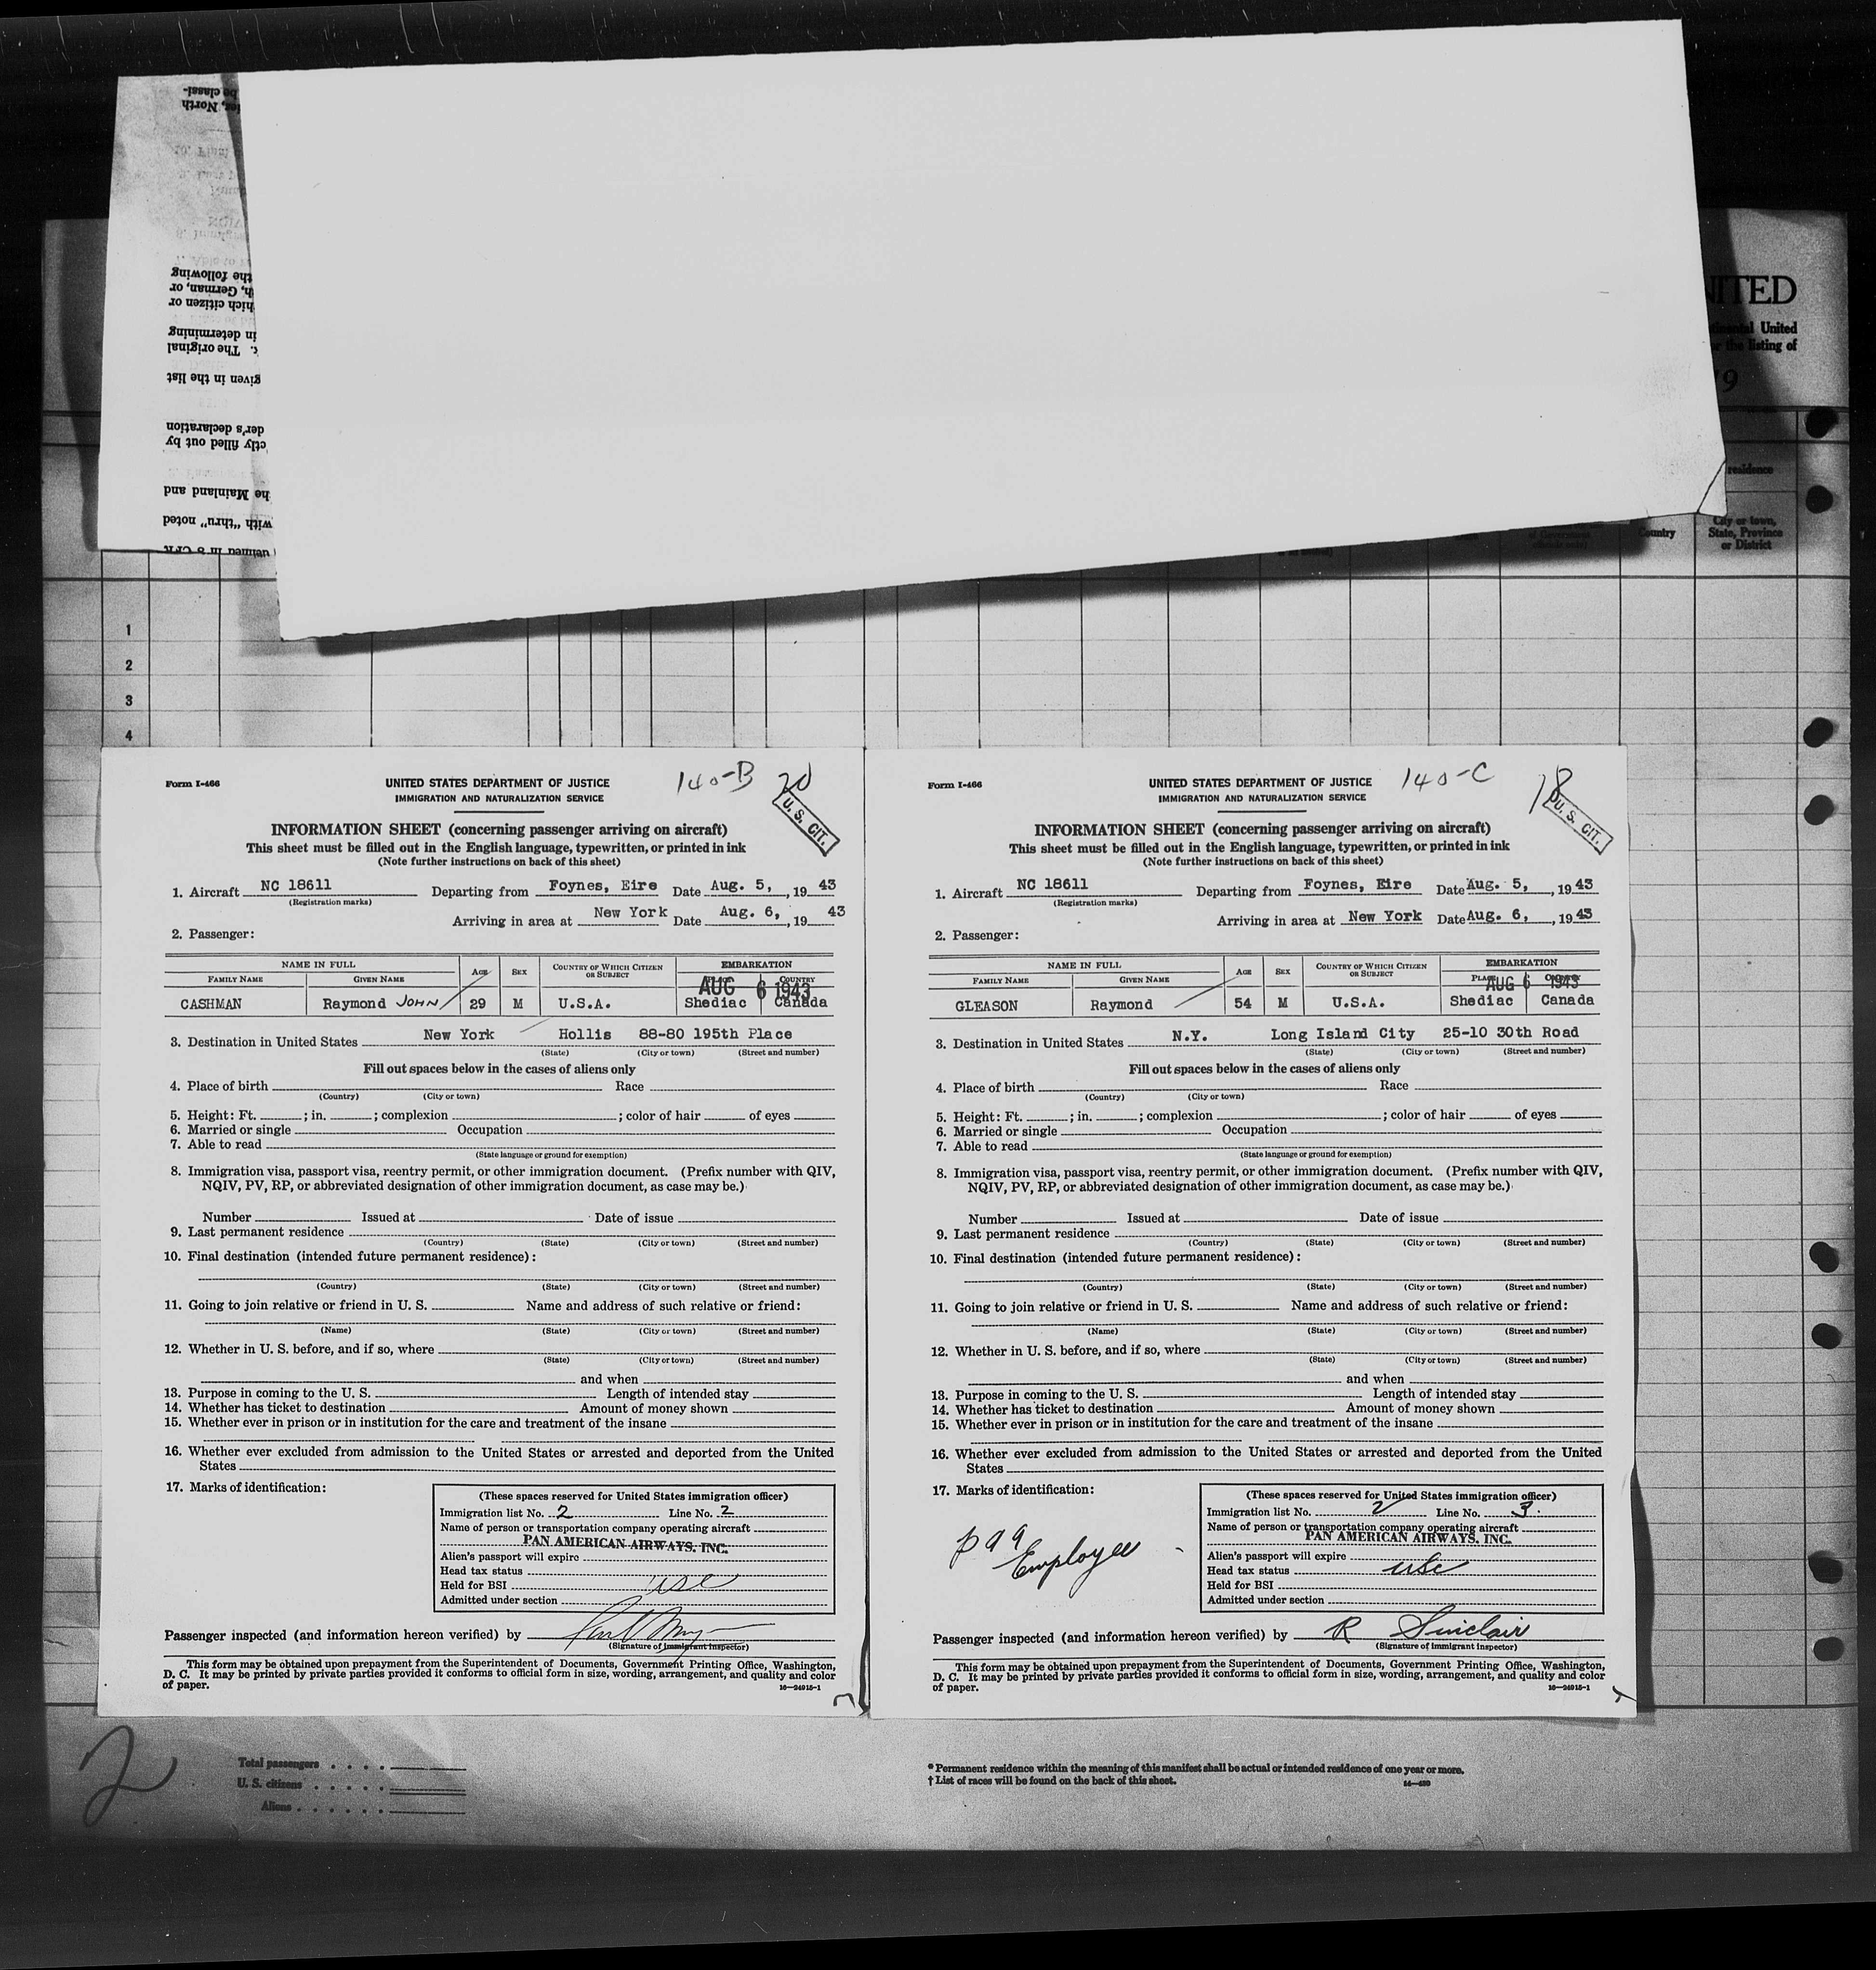 be classi-
es, North
the following
h, German, or
hich citizen or
in determining
The original
given in the list
der's declaration
ctly filled out by
he Mainland and
with "thru" noted
NITED
United
the listing of
19
residence
Country
City or town,
State, Province
or District
1
2
3
4
140-B 20
Form I-466
UNITED STATES DEPARTMENT OF JUSTICE
IMMIGRATION AND NATURALIZATION SERVICE
U. S. CIT.
INFORMATION SHEET (concerning passenger arriving on aircraft)
This sheet must be filled out in the English language, typewritten, or printed in ink
(Note further instructions on back of this sheet)
1. Aircraft NC 18611 Departing from Foynes, Eire Date Aug. 5, , 19 43
(Registration marks)
Arriving in area at New York Date Aug. 6, , 19 43
2. Passenger:
NAME IN FULL AGE SEX COUNTRY OF WHICH CITIZEN OR SUBJECT EMBARKATION
FAMILY NAME GIVEN NAME PLACE COUNTRY
AUG 6 1943
CASHMAN Raymond JOHN 29 M U.S.A. Shediac Canada
3. Destination in United States New York Hollis 88-80 195th Place
(State) (City or town) (Street and number)
Fill out spaces below in the cases of aliens only
4. Place of birth Race
(Country) (City or town)
5. Height: Ft. ; in. ; complexion ; color of hair of eyes
6. Married or single Occupation
7. Able to read
(State language or ground for exemption)
8. Immigration visa, passport visa, reentry permit, or other immigration document. (Prefix number with QIV,
NQIV, PV, RP, or abbreviated designation of other immigration document, as case may be.)
Number Issued at Date of issue
9. Last permanent residence
(Country) (State) (City or town) (Street and number)
10. Final destination (intended future permanent residence):
(Country) (State) (City or town) (Street and number)
11. Going to join relative or friend in U. S. Name and address of such relative or friend:
(Name) (State) (City or town) (Street and number)
12. Whether in U. S. before, and if so, where
(State) (City or town) (Street and number)
and when
13. Purpose in coming to the U. S. Length of intended stay
14. Whether has ticket to destination Amount of money shown
15. Whether ever in prison or in institution for the care and treatment of the insane
16. Whether ever excluded from admission to the United States or arrested and deported from the United
States
17. Marks of identification:
(These spaces reserved for United States immigration officer)
Immigration list No. 2 Line No. 2
Name of person or transportation company operating aircraft
PAN AMERICAN AIRWAYS. INC.
Alien's passport will expire
Head tax status
Held for BSI usc
Admitted under section
Passenger inspected (and information hereon verified) by
(Signature of immigrant inspector)
This form may be obtained upon prepayment from the Superintendent of Documents, Government Printing Office, Washington,
D. C. It may be printed by private parties provided it conforms to official form in size, wording, arrangement, and quality and color
of paper.
16—24915-1
140-C 18
Form I-466
UNITED STATES DEPARTMENT OF JUSTICE
IMMIGRATION AND NATURALIZATION SERVICE
U. S. CIT.
INFORMATION SHEET (concerning passenger arriving on aircraft)
This sheet must be filled out in the English language, typewritten, or printed in ink
(Note further instructions on back of this sheet)
1. Aircraft NC 18611 Departing from Foynes, Eire Date Aug. 5, , 19 43
(Registration marks)
Arriving in area at New York Date Aug. 6, , 19 43
2. Passenger:
NAME IN FULL AGE SEX COUNTRY OF WHICH CITIZEN OR SUBJECT EMBARKATION
FAMILY NAME GIVEN NAME PLACE COUNTRY
AUG 6 1943
GLEASON Raymond 54 M U.S.A. Shediac Canada
3. Destination in United States N.Y. Long Island City 25-10 30th Road
(State) (City or town) (Street and number)
Fill out spaces below in the cases of aliens only
4. Place of birth Race
(Country) (City or town)
5. Height: Ft. ; in. ; complexion ; color of hair of eyes
6. Married or single Occupation
7. Able to read
(State language or ground for exemption)
8. Immigration visa, passport visa, reentry permit, or other immigration document. (Prefix number with QIV,
NQIV, PV, RP, or abbreviated designation of other immigration document, as case may be.)
Number Issued at Date of issue
9. Last permanent residence
(Country) (State) (City or town) (Street and number)
10. Final destination (intended future permanent residence):
(Country) (State) (City or town) (Street and number)
11. Going to join relative or friend in U. S. Name and address of such relative or friend:
(Name) (State) (City or town) (Street and number)
12. Whether in U. S. before, and if so, where
(State) (City or town) (Street and number)
and when
13. Purpose in coming to the U. S. Length of intended stay
14. Whether has ticket to destination Amount of money shown
15. Whether ever in prison or in institution for the care and treatment of the insane
16. Whether ever excluded from admission to the United States or arrested and deported from the United
States
17. Marks of identification:
paa
Employee
(These spaces reserved for United States immigration officer)
Immigration list No. 2 Line No. 3.
Name of person or transportation company operating aircraft
PAN AMERICAN AIRWAYS. INC.
Alien's passport will expire
Head tax status usc
Held for BSI
Admitted under section
Passenger inspected (and information hereon verified) by R Sinclair
(Signature of immigrant inspector)
This form may be obtained upon prepayment from the Superintendent of Documents, Government Printing Office, Washington,
D. C. It may be printed by private parties provided it conforms to official form in size, wording, arrangement, and quality and color
of paper.
16—24915-1
2
Total passengers
U. S. citizens
Aliens
* Permanent residence within the meaning of this manifest shall be actual or intended residence of one year or more.
† List of races will be found on the back of this sheet.